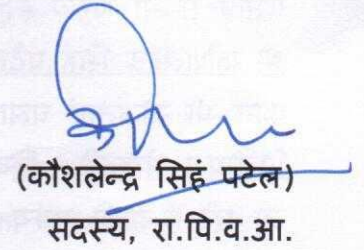 (कौशलेन्द्र सिहं पटेल)
सदस्य, रा.पि.व.आ.